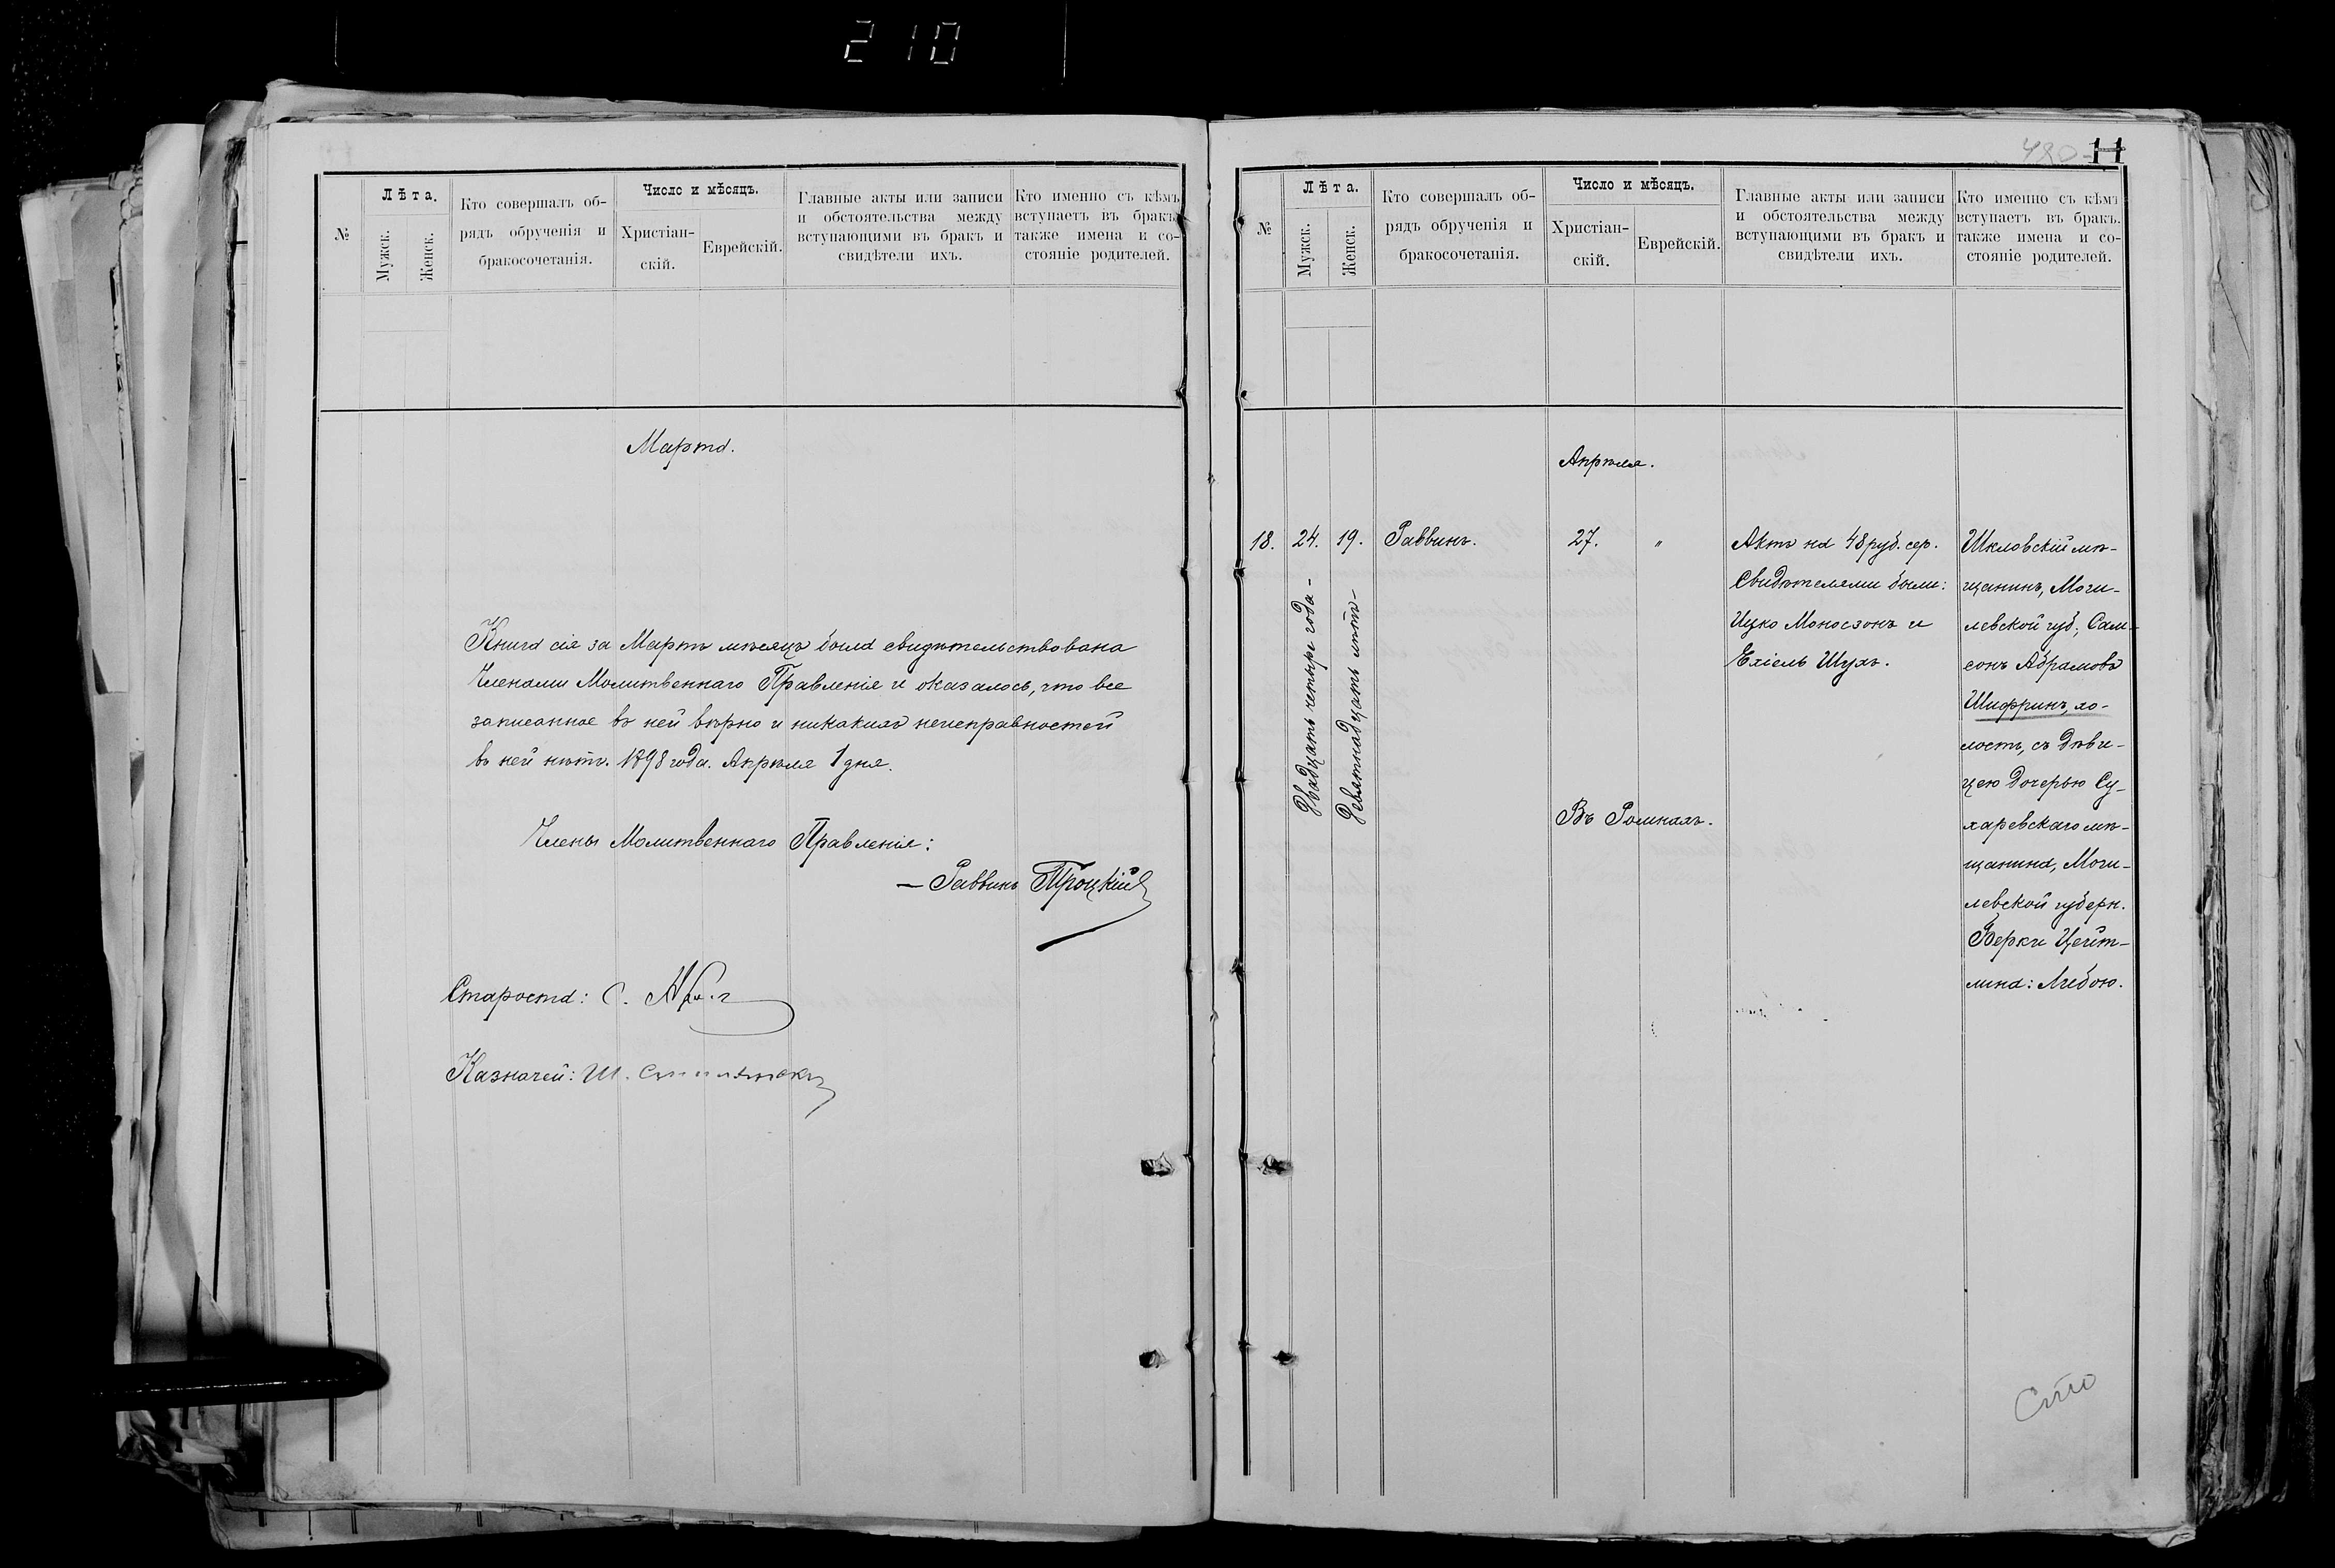 210
№
Лѣта.
Мужск.
Женск.
Кто совершалъ об-
рядъ обрученія и
бракосочетанія.
Число и мѣсяцъ.
Христіан-
скій.
Еврейскій.
Главные акты или записи
и обстоятельства между
вступающими въ бракъ и
свидѣтели ихъ.
Кто именно съ кѣмъ
вступаетъ въ бракъ,
также имена и со-
стояніе родителей.
Марта.
Книга сія за Мартъ мѣсяцъ была свидѣтельствована
Членами Молитвеннаго Правленія и оказалось, что все
записанное въ ней вѣрно и никакихъ неисправностей
въ ней нѣтъ. 1898 года. Апрѣля 1 дня.
Члены Молитвеннаго Правленія:
— Раввинъ Троцкій
Староста: С.
Казначей: Ш.
11
№
Лѣта.
Мужск.
Женск.
Кто совершалъ об-
рядъ обрученія и
бракосочетанія.
Число и мѣсяцъ.
Христіан-
скій.
Еврейскій.
Главные акты или записи
и обстоятельства между
вступающими въ бракъ и
свидѣтели ихъ.
Кто именно съ кѣмъ
вступаетъ въ бракъ.
также имена и со-
стояніе родителей.
Апрѣля.
18.
24.
Двадцать четыре года-
19.
Девятнадцать лѣтъ-
Раввинъ.
27.
"
Въ Ромнахъ.
Актъ на 48 руб. сер.
Свидѣтелями были:
Ицко Моносзонъ и
Ехіель Шухъ.
Шкловскій мѣ-
щанинъ, Моги-
левской губ., Сам-
сонъ Абрамовъ
Шифринъ, хо-
лостъ, съ дѣви-
цею дочерью Су-
харевскаго мѣ-
щанина, Моги-
левской губерн.
Берки Цейт-
лина: Либою.